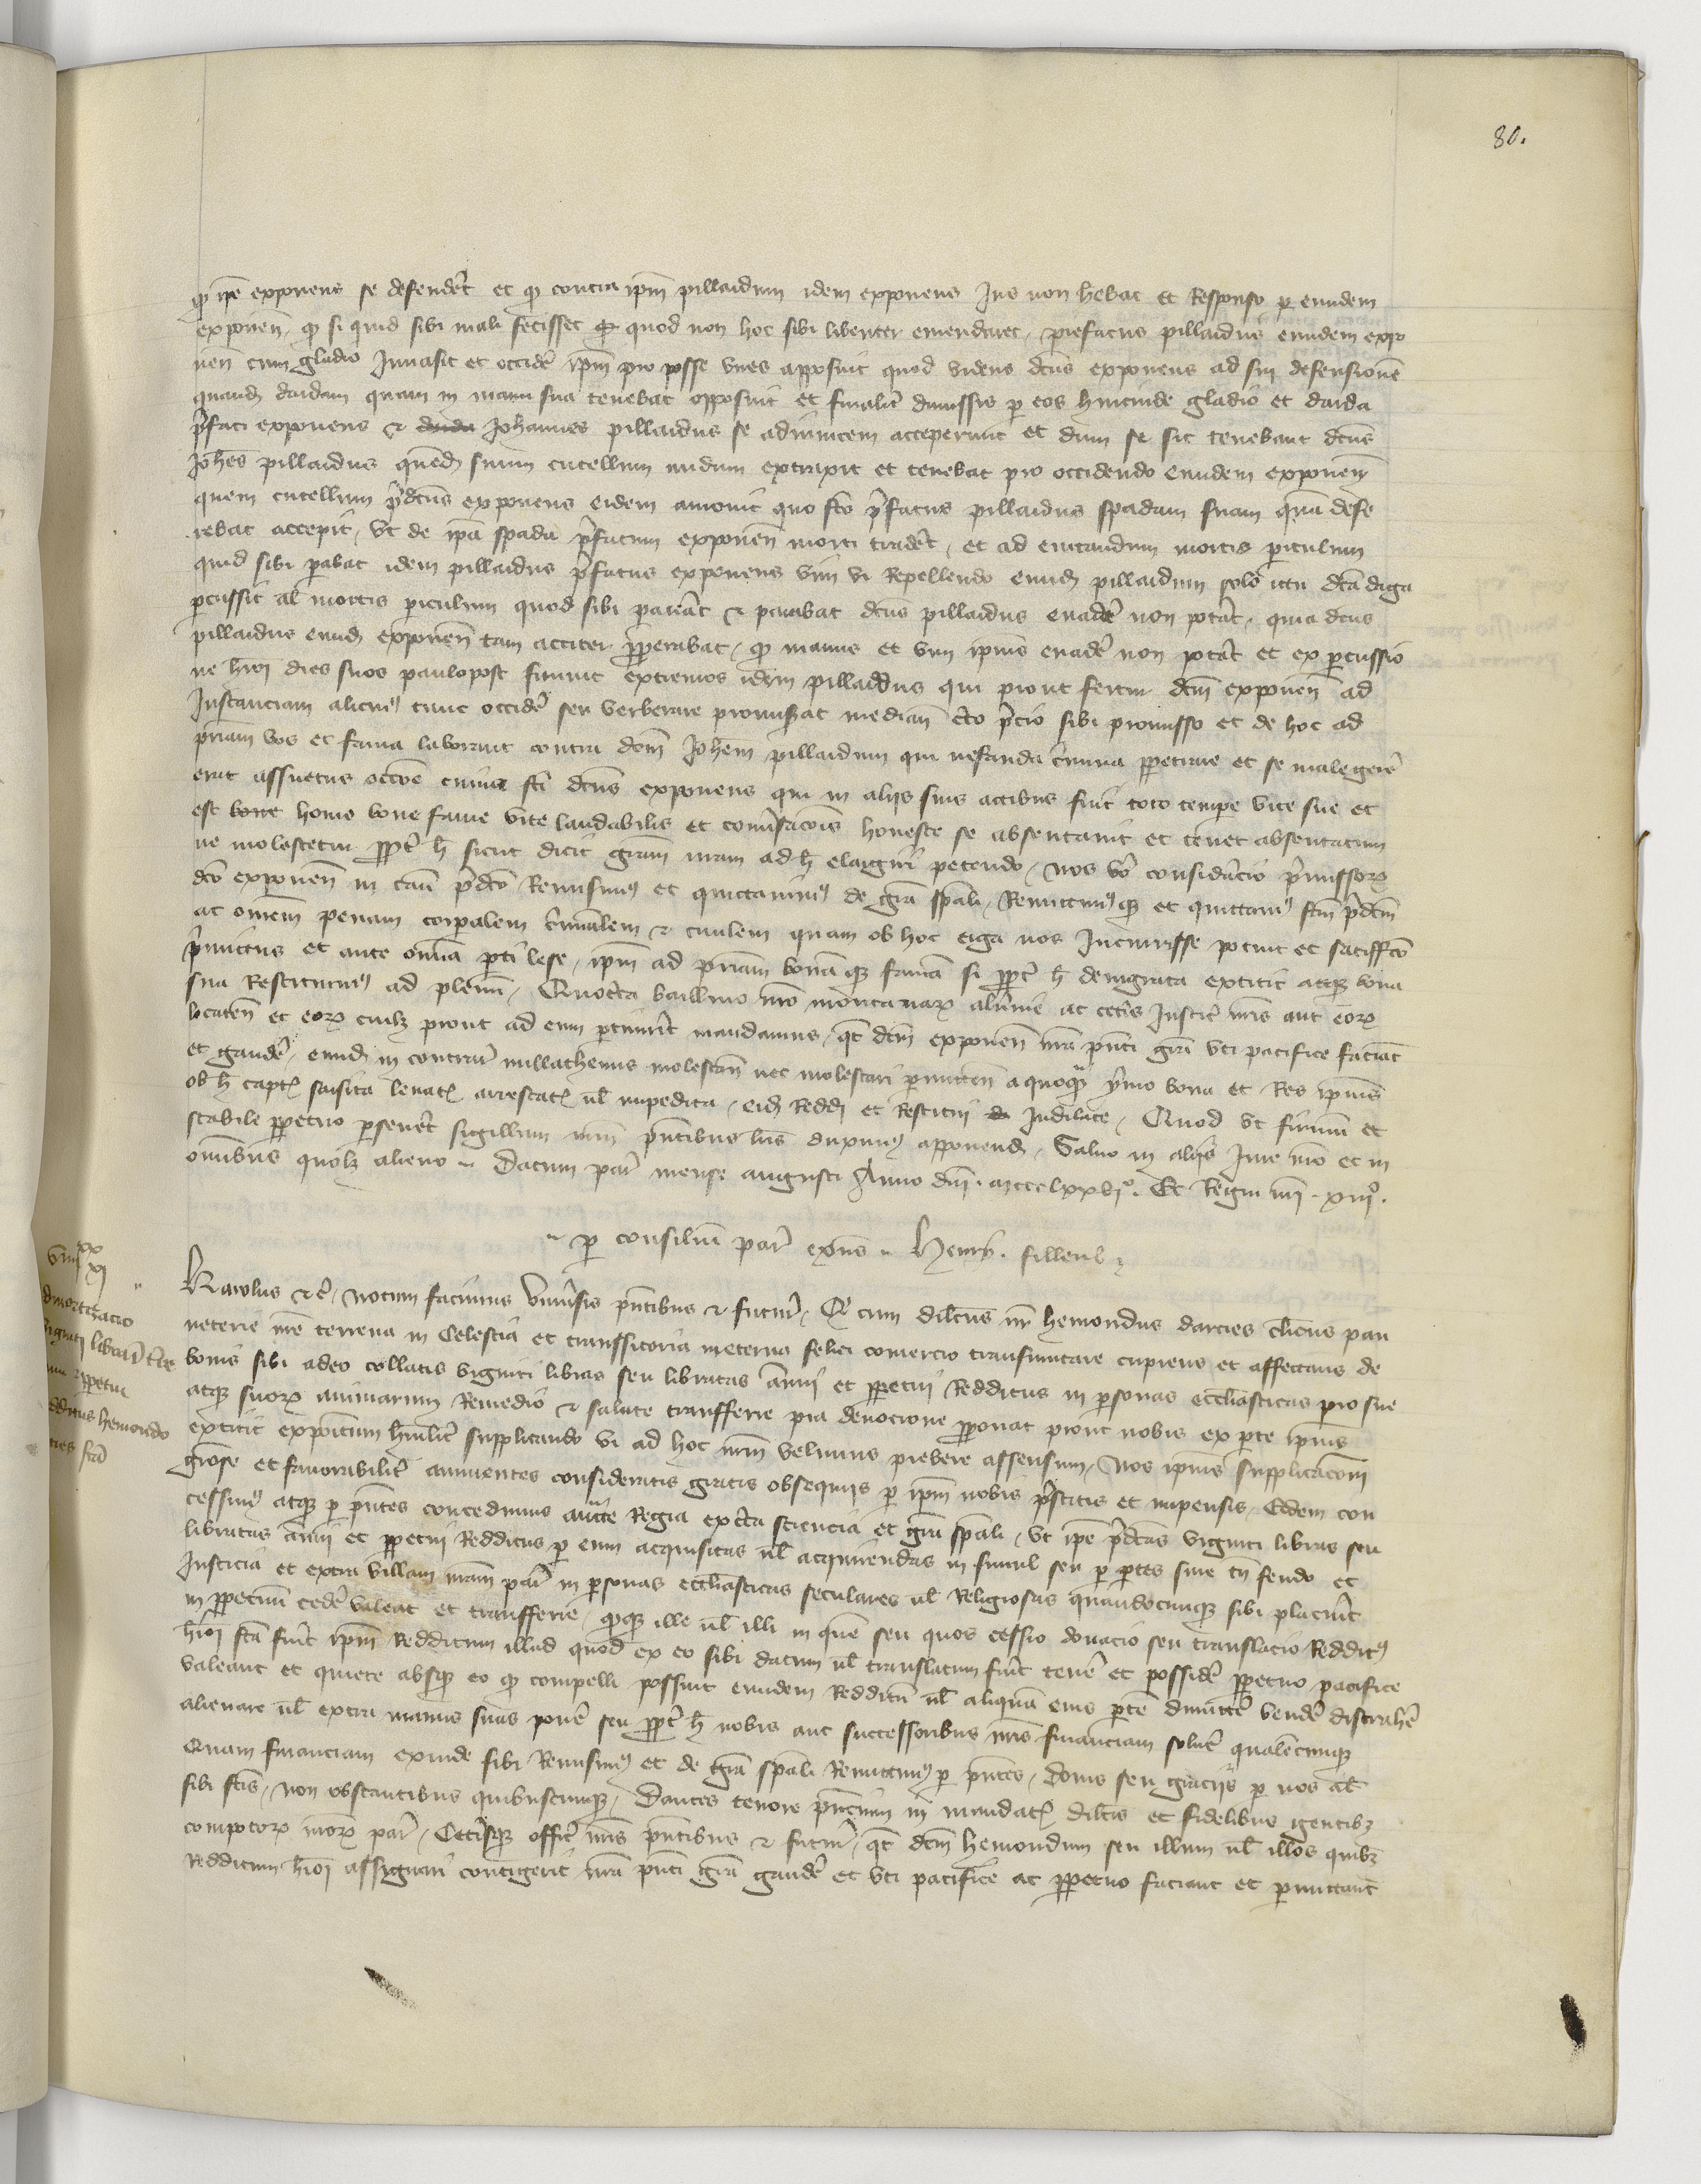 80.
quod ipse exponens se defenderet et quod contra ipsum pillardum idem exponens Jus non hebat et Responso per eundem
exponen. quod si quid sibi mali fecisset quod non hoc sibi libenter emendaret, prefatus pillardus eundem expo
nen cum gladio Jnvasit et occidere ipsum pro posse vires apposuit quod videns dcus exponens ad sui defensionem
quand dardam quam in manu sua tenebat opposuit et finaliter dimissis per eos hincinde gladio et darda
prefati exponens et Johannes pillardus se adinvicem acceperunt et dum se sic tenebant dcus
Johes pillardus quend suum cutellum nudum extraxit et tenebat pro occidendo eundem exponen
quem cutellum predcus exponens eidem amovit quo fco prefatus pillardus spadam suam quam defe
rebat accepit, ut de ipsa spada prefatum exponen morti traderet, et ad evitandum mortis periculum
quid sibi parabat idem pillardus prefatus exponens vim vi Repellendo eund pillardum solo ictu dca daga
percussit al mortis periculum quod sibi parabat dcus pillardus evadere non poterat, quia dcus
pillardus eund exponen tam acriter properabat, quod manus et vim ipsius evadere non poterat et ex percussio
ne hmoi dies suos paulopost finivit extremos idem pillardus qui prout fertur dcm exponen ad
Jnstanciam alicuius tunc occidere seu verberare promiserat median certo precio sibi promisso et de hoc ad
priam vos et fama laborant contra dcm Johem pillardum qui nefanda crimina perpetrare et se male gerere
erat assuetus occone cuius fci dcus exponens qui in alijs suis actibus fuit toto tempore vite sue et
est homo bone fame vite laudabilis et conversacois honeste se absentavit et tenet absentatum
ne molestetur propter h sicut dicit gram nram ad h elargiri petendo, Nos vero consideracio premissorum
dco exponen in casu predco Remisimus et quictavimus de gra spali, Remittimusque et quittamus fcm predcm
ac omem penam corpalem criminalem et civilem quam ob hoc erga nos Jncurrisse potuit et satiffco
primitus et ante omnia parti lese, ipsm ad priam bonamque famam si propter h denigrata extitit atque bona
sua Restituimus ad plenum, Quocirca baillivo nro montanarum alvernie ac ceteris Justic nris aut eorum
locaten et eorum cuilibet prout ad eum pertinuerit mandamus, quat dcm exponen nra pnti gra uti pacifice faciant
et gaudere, eund in contrar nullathenus molestan nec molestari permitten a quoquam ymo bona et Res ipsius
ob h capta saisita levata arrestata vel impedita, eid Reddi et Restitui Jndilate, Quod ut firmum et
stabile perpetuo perseveret sigillum nrm pntibus lris duximus apponend, Salvo in alijs Jure nro et in
omnibus quolibet alieno. Datum par mense augusti Anno dni. mccclxxvjo. Et Regni nri. xiijo.
per consilium par exns. Henr. filleul
Karolus etc, Notum facimus universis pntibus et futur, Quod cum dilcus nr hemondus darcies clicus pan
neterie nre terrena in Celestia et transsitoria in eterna felici comercio transmutare cupiens et affectans de
bonis sibi a deo collatis viginti libras seu libratas annui et perpetui Redditus in personas ecclasticas pro sue
atque suorum animarum Remedio et salute transferre pia devocione proponat prout nobis ex parte ipsius
extitit expositum humiliter supplicando ut ad hoc nrm velimus prebere assensum, Nos ipsius supplicaconi
griose et favorabiliter annuentes consideratis gratis obsequijs per ipsum nobis prestitis et impensis, Eidem con
cessimus atque per pntes concedimus aucte Regia ex certa sciencia et gra spali, ut ipse predcas viginti libras seu
libratas annui et perpetui Redditus per eum acquisitas vel acquirendas in simul seu per partes sine tn feudo et
Justicia et extra villam nram par in personas ecclasticas seculares vel Religiosas quandocunque sibi placuerit
in perpetuum cedere valeat et transferre, quodque ille vel illi in quem seu quos cessio donacio seu translacio Redditus
hmoi fca fuerit ipsum Redditum illud quod ex eo sibi datum vel translatum fuerit tenere et possidere perpetuo pacifice
valeant et quiete absque eo quod compelli possint eundem Redditum vel aliquam eius partem dimittere vendere distrahere
alienare vel extra manus suas ponere seu propter h nobis aut successoribus nris financiam solvere qualemcunque
Quam financiam exinde sibi Remisimus et de gra spali Remittimus per pntes, donis seu gracijs per nos al
sibi fcis, non obstantibus quibuscunque, Dantes tenore pntium in mandatis dilcis et fidelibus gentibz
compotorum nrorum par, Ceterisque offic nris pntibus et futur, quat dcm hemondum seu illum vel illos quibz
Redditum hmoi assignari contigerit nra pnti gra gaudere et uti pacifice ac perpetuo faciant et permittant